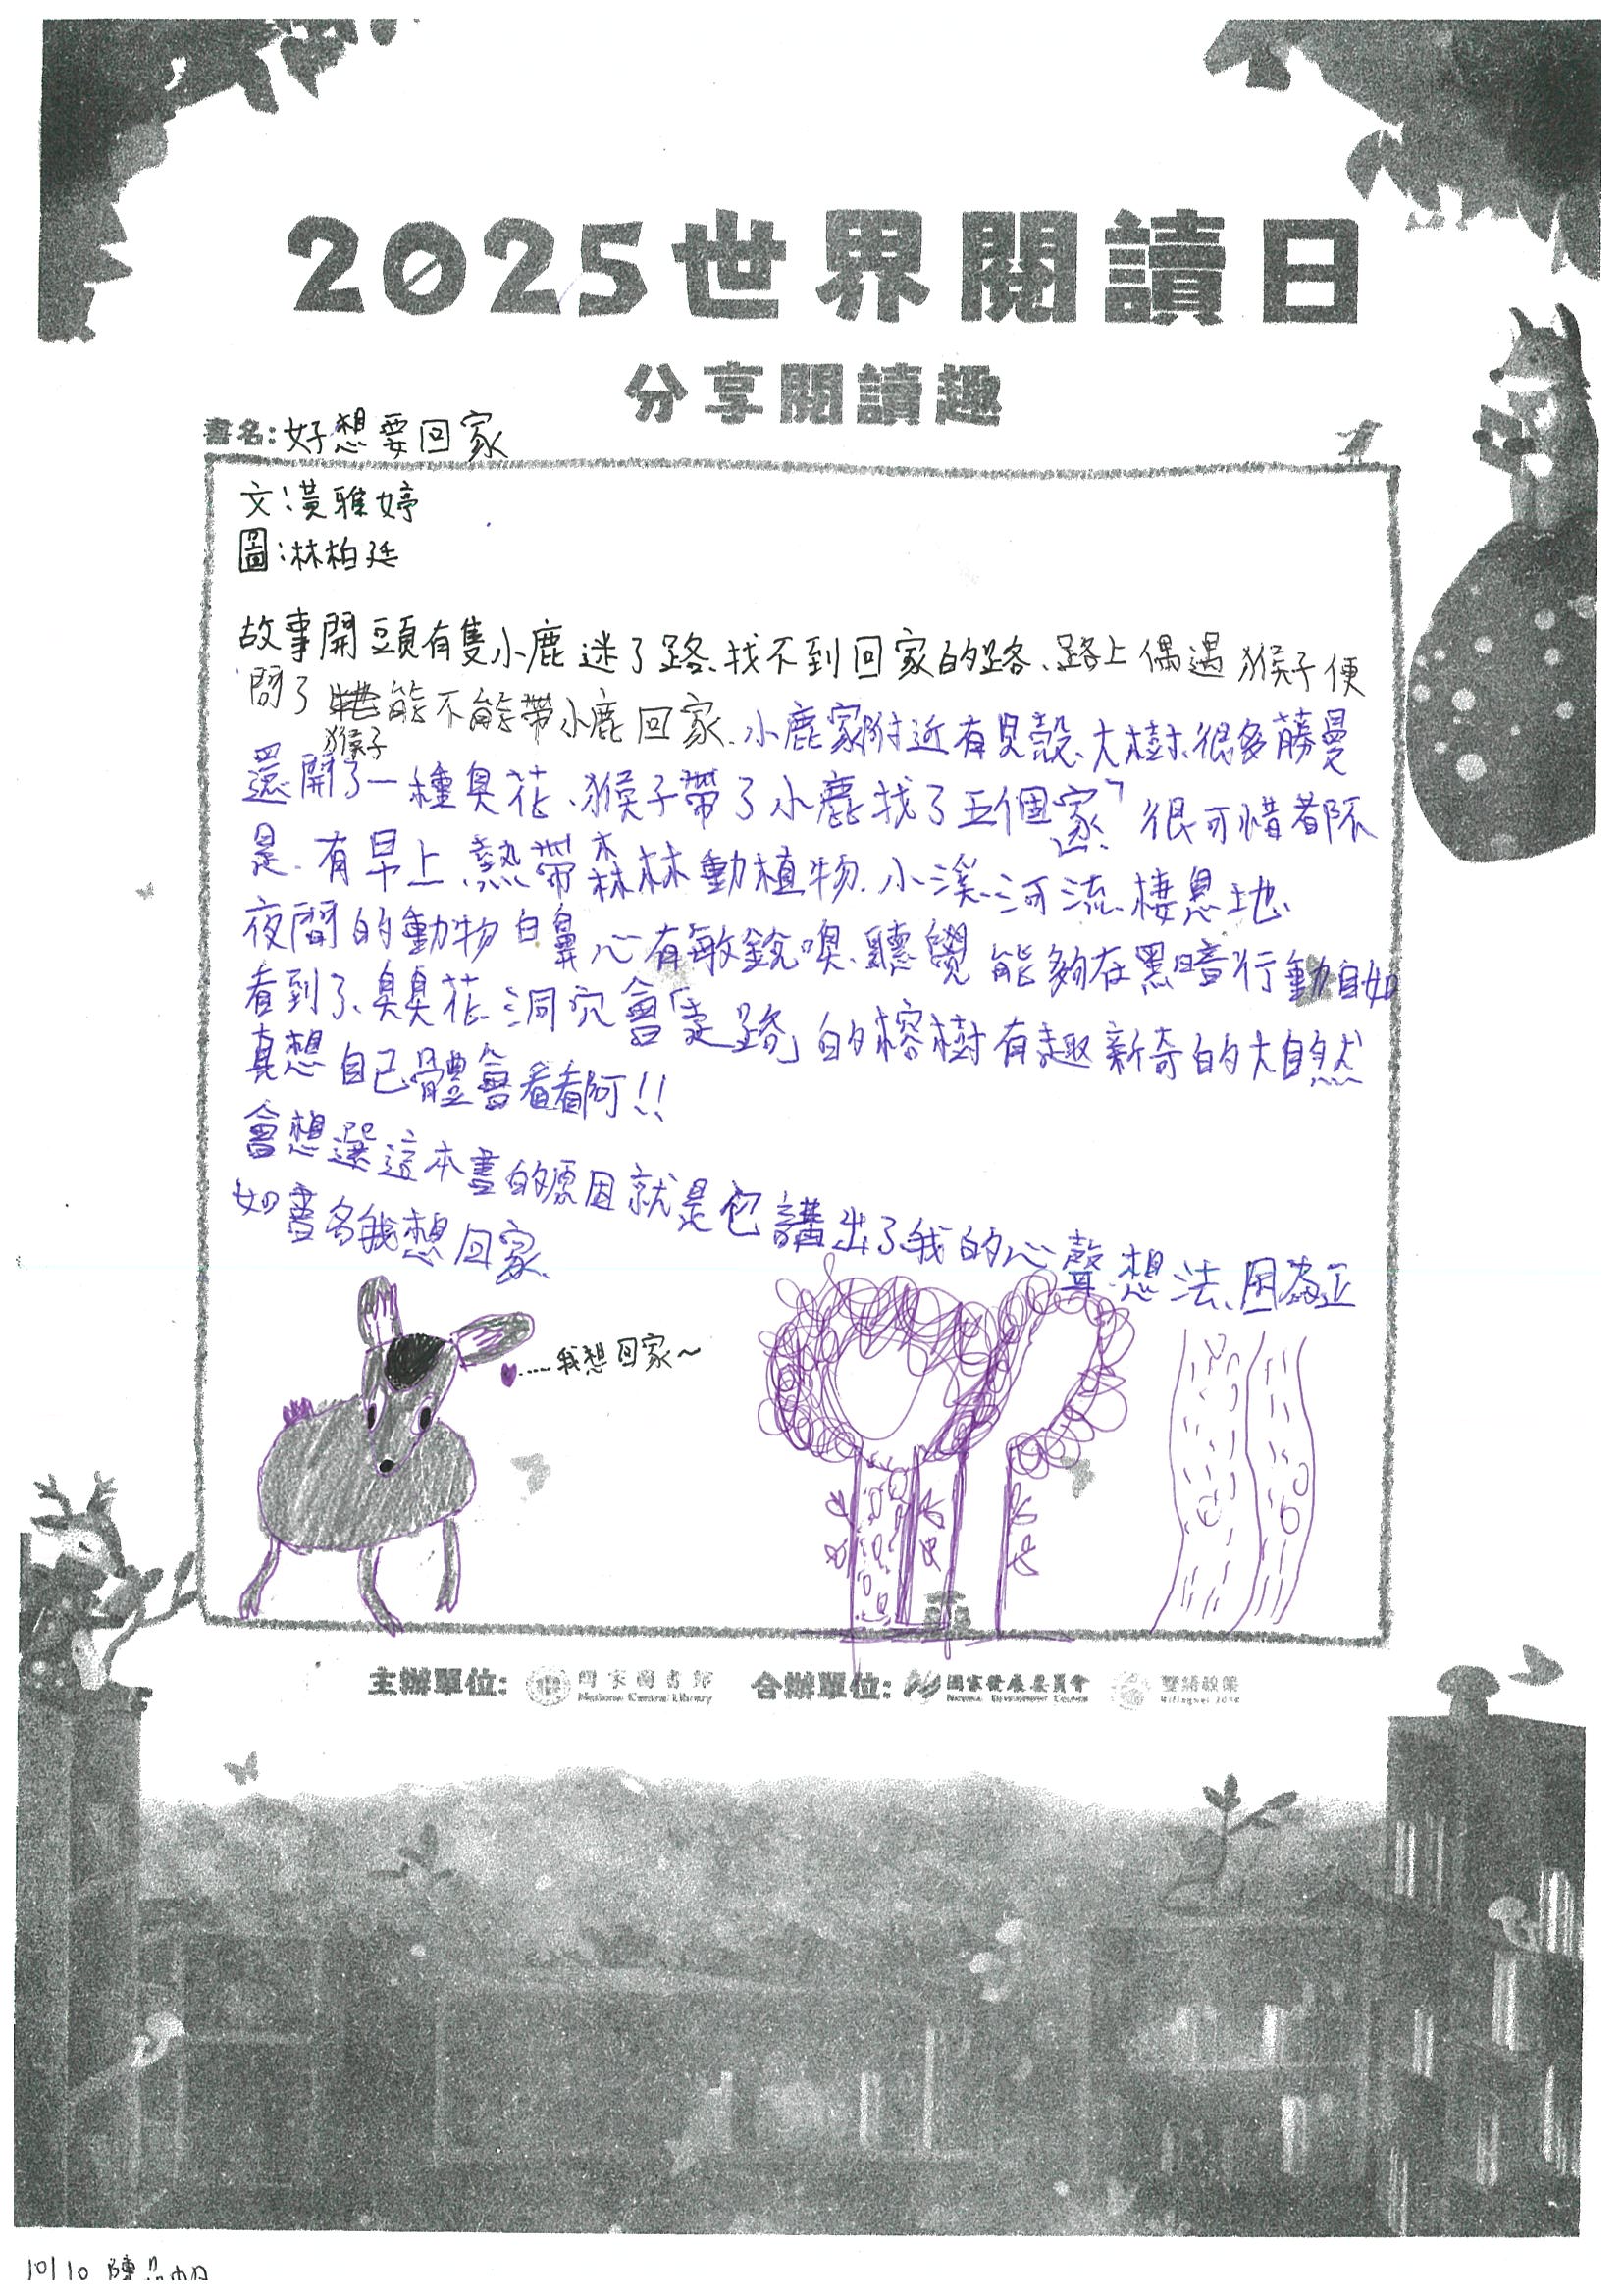 2025世界閱讀日
分享閱讀趣
書名:好想要回家
文:黃雅婷
圖:林柏廷
故事開頭有隻小鹿迷了路、找不到回家的路、路上偶遇猴子便
問了猴子能不能帶小鹿回家、小鹿家附近有貝殼、大樹、很多藤蔓
還開了一種臭花、猴子帶了小鹿找了五個「家」很可惜都不
是、有早上熱帶森林動植物、小溪、河流、棲息地、
夜間的動物白鼻心有敏銳嗅、聽覺能夠在黑暗行動自如
看到了、臭臭花、洞穴會「走路」的榕樹有趣新奇的大自然
真想自己體會看看阿!!
會想選這本書的原因就是它講出了我的心聲、想法、因為正
如書名我想回家、
.....我想回家~
主辦單位: 國家圖書館 National Central Library 合辦單位: 國家發展委員會 National Development Council 雙語政策 Bilingual 2030
10110 陳